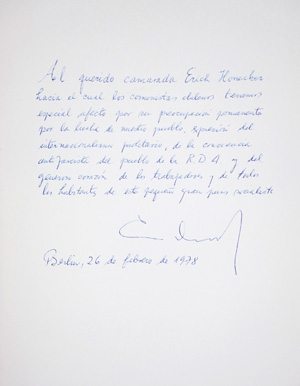 Al querido camarada Erich Honecker
hacia el cual los comunistas chilenos tenemos
especial afecto por su preocupación permanente
por la lucha de nuestro pueblo, expresión del
internacionalismo proletario, de la conciencia
antifascista del pueblo de la R.D.A. y del
generoso corazón de los trabajadores y de todos
los habitantes de este pequeño gran país socialista
Berlín, 26 de febrero de 1978